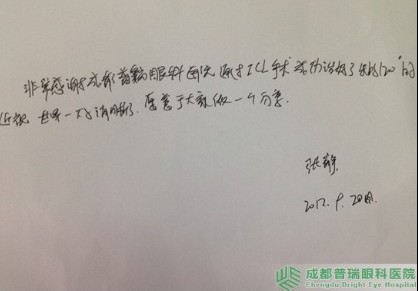 非常感谢成都普瑞眼科医院通过ICL手术成功治好了我的1200°的
近视,世界一下清晰了.愿意于大家做一个分享.
张静
2017.9.20日.
成都普瑞眼科医院
Chengdu Bright Eye Hospital